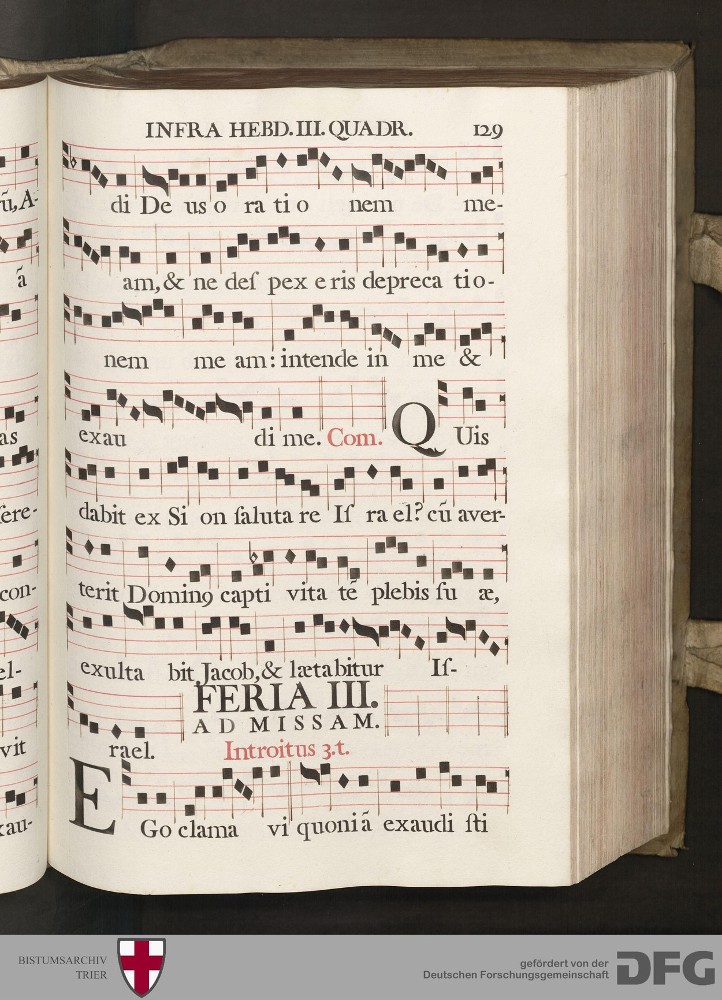 INFRA HEBD. III. QUADR. 129
ũ, A-
di De us o ra ti o nem me-
ã
am, & ne deſ pex e ris depreca tio-
nem me am: intende in me &
as
exau di me. Com. QUis
ſere-
dabit ex Si on ſaluta re Iſ ra el? cũ aver-
con-
terit Dominꝯ capti vita tẽ plebis ſu æ,
el-
exulta bit Jacob, & lætabitur Iſ-
FERIA III.
AD MISSAM.
vit
rael. Introitus 3. t.
xau-
EGo clama vi quoniã exaudi ſti
BISTUMSARCHIV
TRIER
gefördert von der
Deutschen Forschungsgemeinschaft
DFG